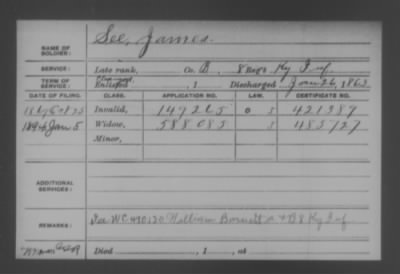 NAME OF SOLDIER: See, James.
SERVICE: Late rank, Co. B, 8 Reg't Ky Inf.
TERM OF SERVICE: Enlisted , 1 Discharged Jan 26, 1863
DATE OF FILING. CLASS. APPLICATION NO. LAW. CERTIFICATE NO.
Invalid, 147265 421387
1894 Jan 5 Widow, 588.083 483727
Minor,
ADDITIONAL SERVICES:
REMARKS: See WC 480120 William Barnett Co B 8 Ky Inf
Died , 1 , at